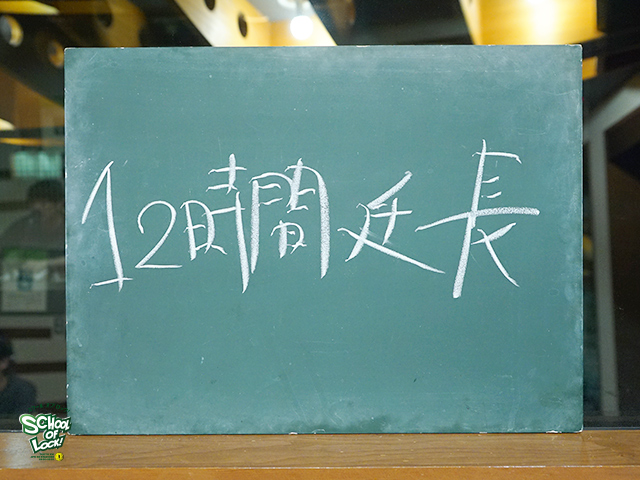 12時間延長
SCHOOL
OF
LOCK!